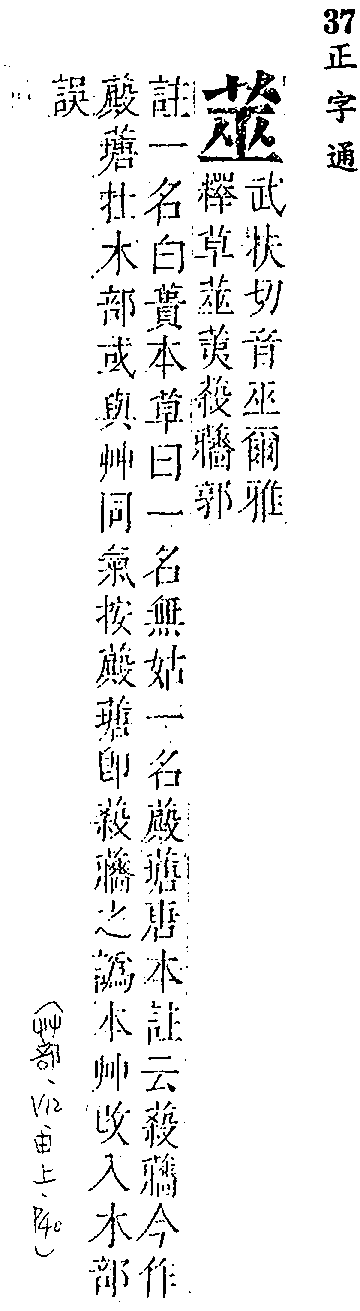 37 正字通
莁
武扶切音巫爾雅
釋草莁荑蔱蘠郭
註一名白蕢本草曰一名無姑一名唐本註云蔱蘠今作
木部或與艸同氣按即蔱蘠之譌本艸收入木部
誤
(艸部、V12申上、P40)